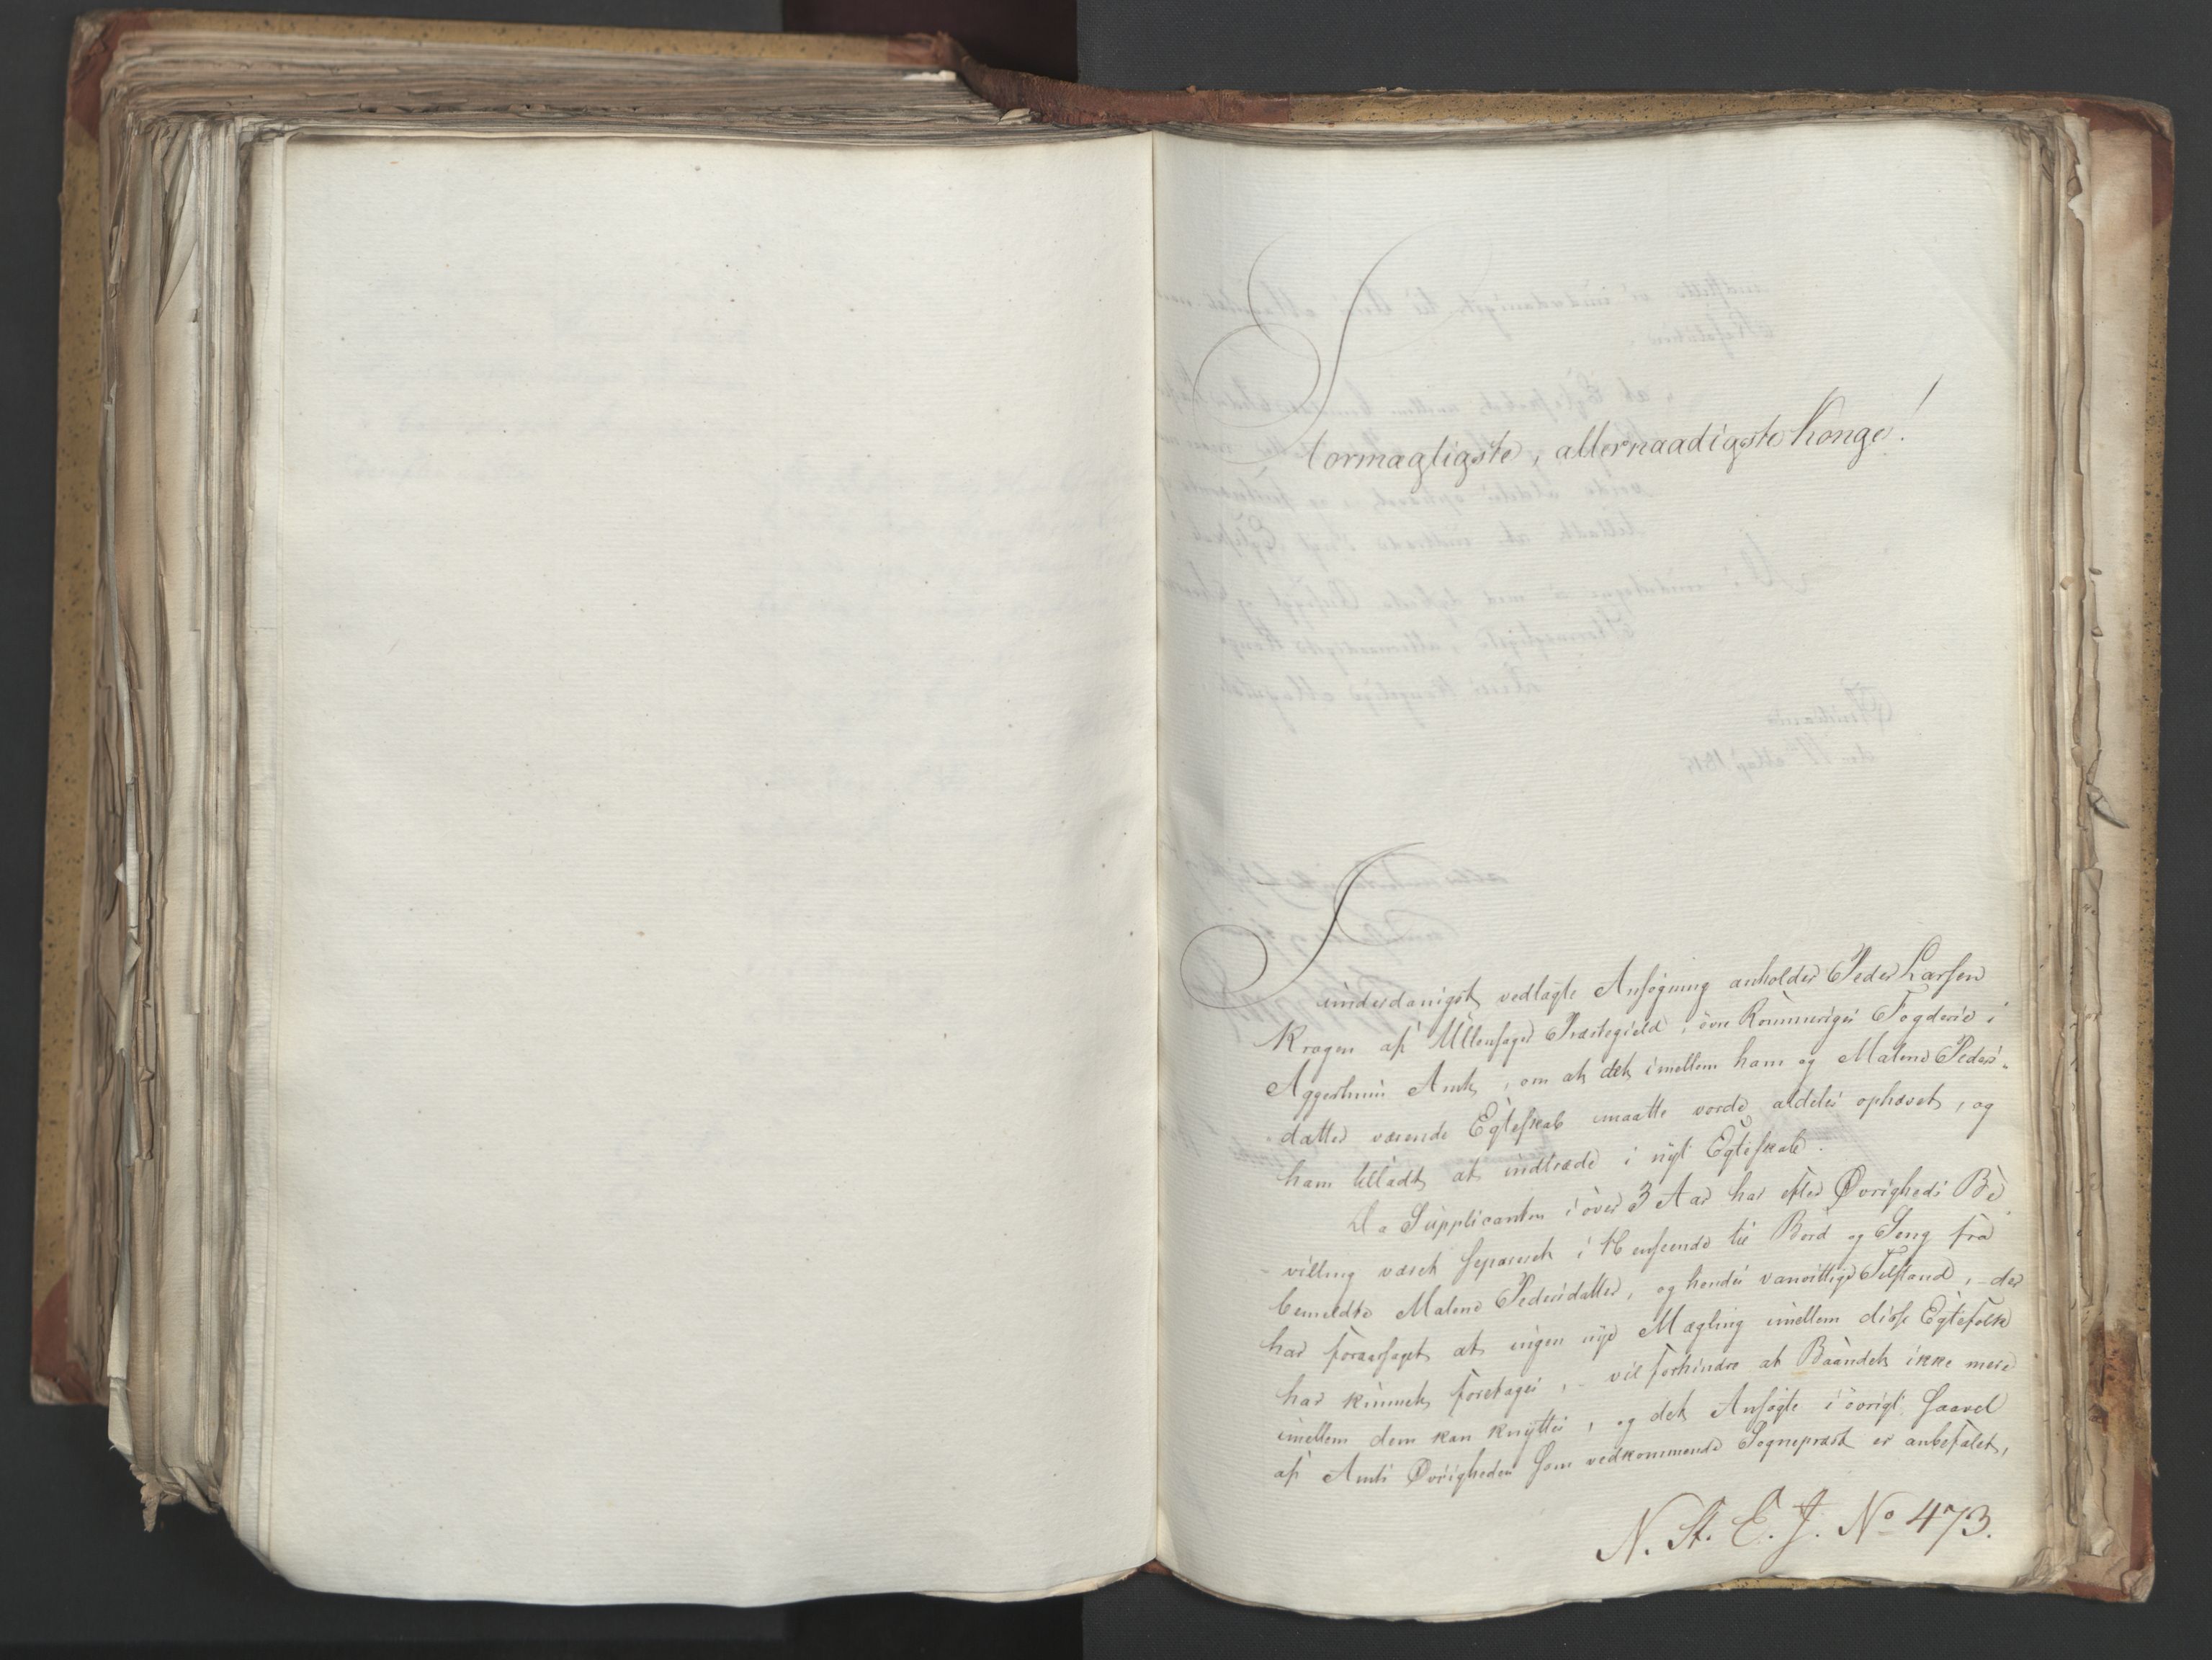 Stormægtigste, allernaadigste Konge!
I underdanigst vedlagte Ansøgning anholder Peder Larsen
Krogen af Ullensager Præstegield i övre Rommeriges Fogderie i
Aggershuus Amt, om at det imellem ham og Malene Peders-
datter værende Egteskab maatte vorde aldeles ophævet, og
ham tilladt at indtræde i nyt Egteskab.
Da Supplicanten i over 3 Aar har efter Øvrigheds Be-
villing været separeret i Henseende til Bord og Seng fra
bemeldte Malene Pedersdatter, og hendes vanvittige Tilstand, der
har foraarsaget at ingen nye Mægling imellem disse Egtefolk
har kunnet foretages, - vil forhindre at Baandet ikke mere
imellem dem kan knyttes, og det Ansøgte i övrigt saavel
af Amts Øvrigheden som vedkommende Sognepræst er anbefalet,
N. St. E. J. No 473.